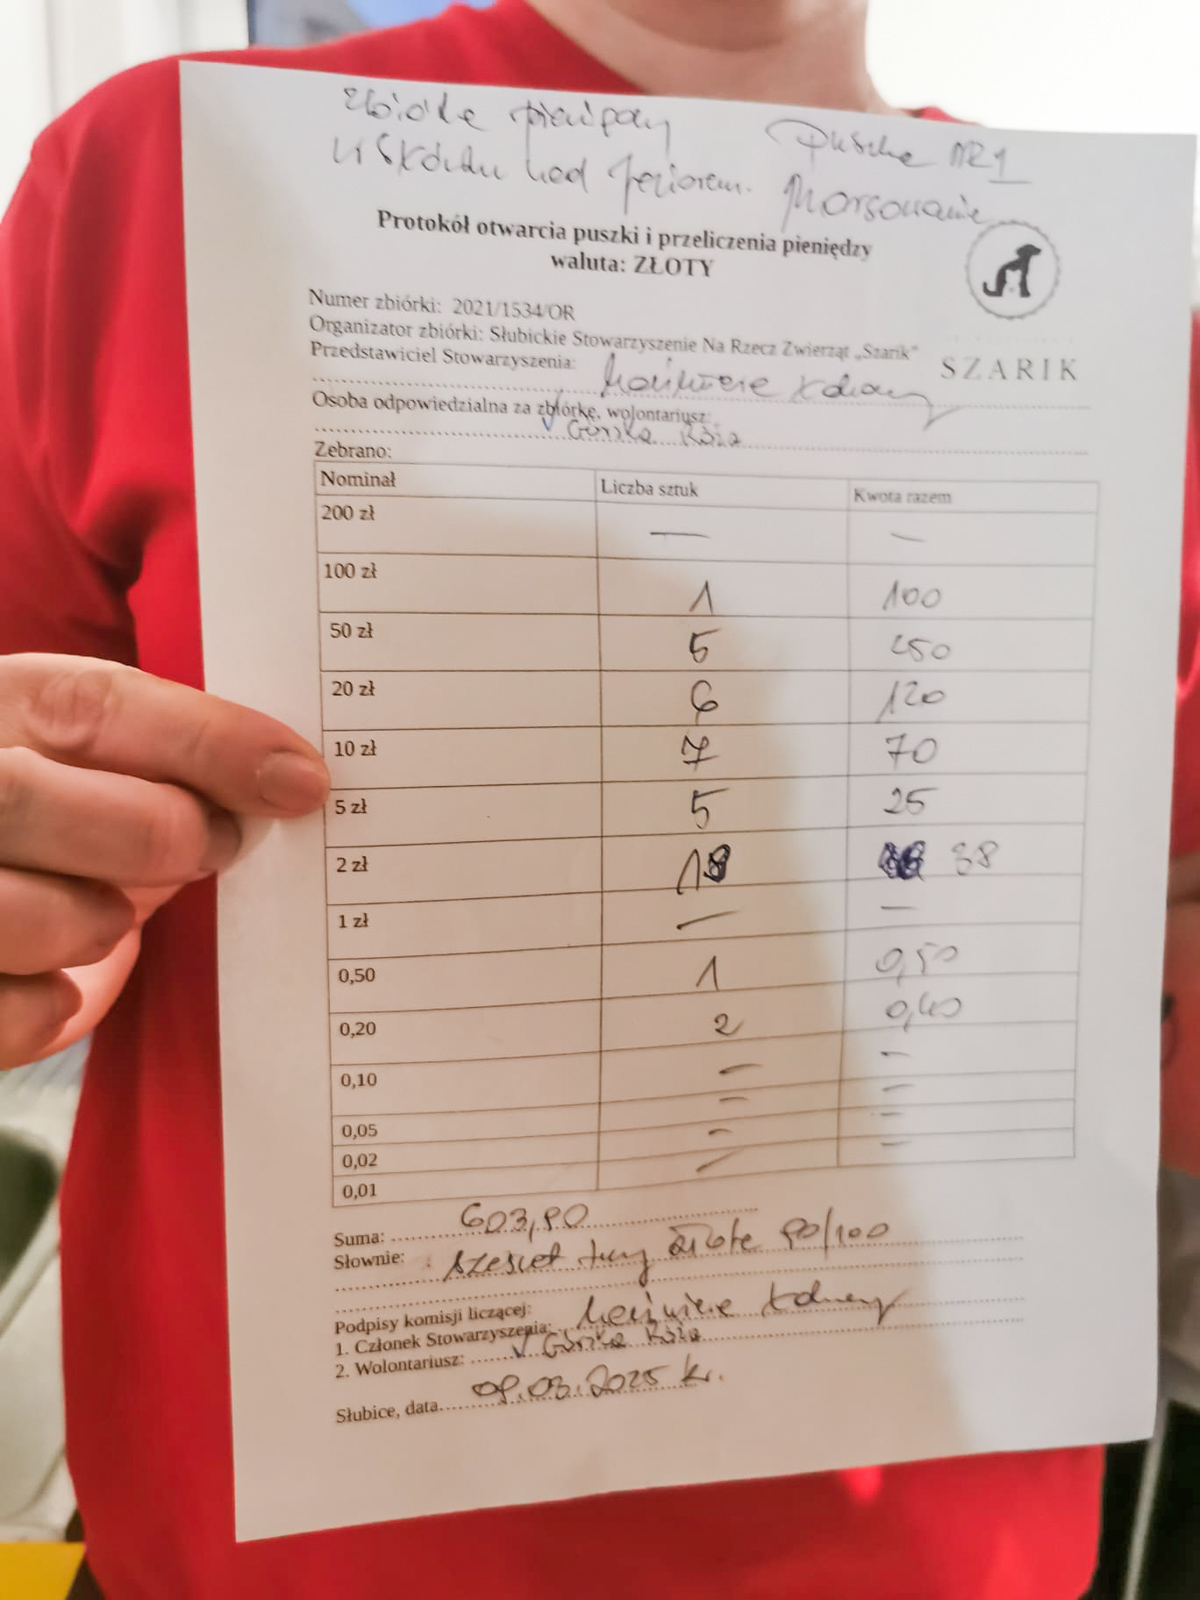 Zbiórka pieniężny Puszka NR 1
w Skórzu nad jeziorem. Morsowanie
Protokół otwarcia puszki i przeliczenia pieniędzy
waluta: ZŁOTY
Numer zbiórki: 2021/1534/OR
Organizator zbiórki: Słubickie Stowarzyszenie Na Rzecz Zwierząt „Szarik”
SZARIK
Przedstawiciel Stowarzyszenia:
Osoba odpowiedzialna za zbiórkę, wolontariusz:
Górska Róża
Zebrano:
Nominał Liczba sztuk Kwota razem
200 zł — —
100 zł 1 100
50 zł 5 250
20 zł 6 120
10 zł 7 70
5 zł 5 25
2 zł 38
1 zł — —
0,50 1 0,50
0,20 2 0,40
0,10 — —
0,05 — —
0,02 — —
0,01 — —
Suma: 603,90
Słownie: sześćset trzy złote 90/100
Podpisy komisji liczącej:
1. Członek Stowarzyszenia:
2. Wolontariusz: Górska Róża
Słubice, data 09.03.2025 r.